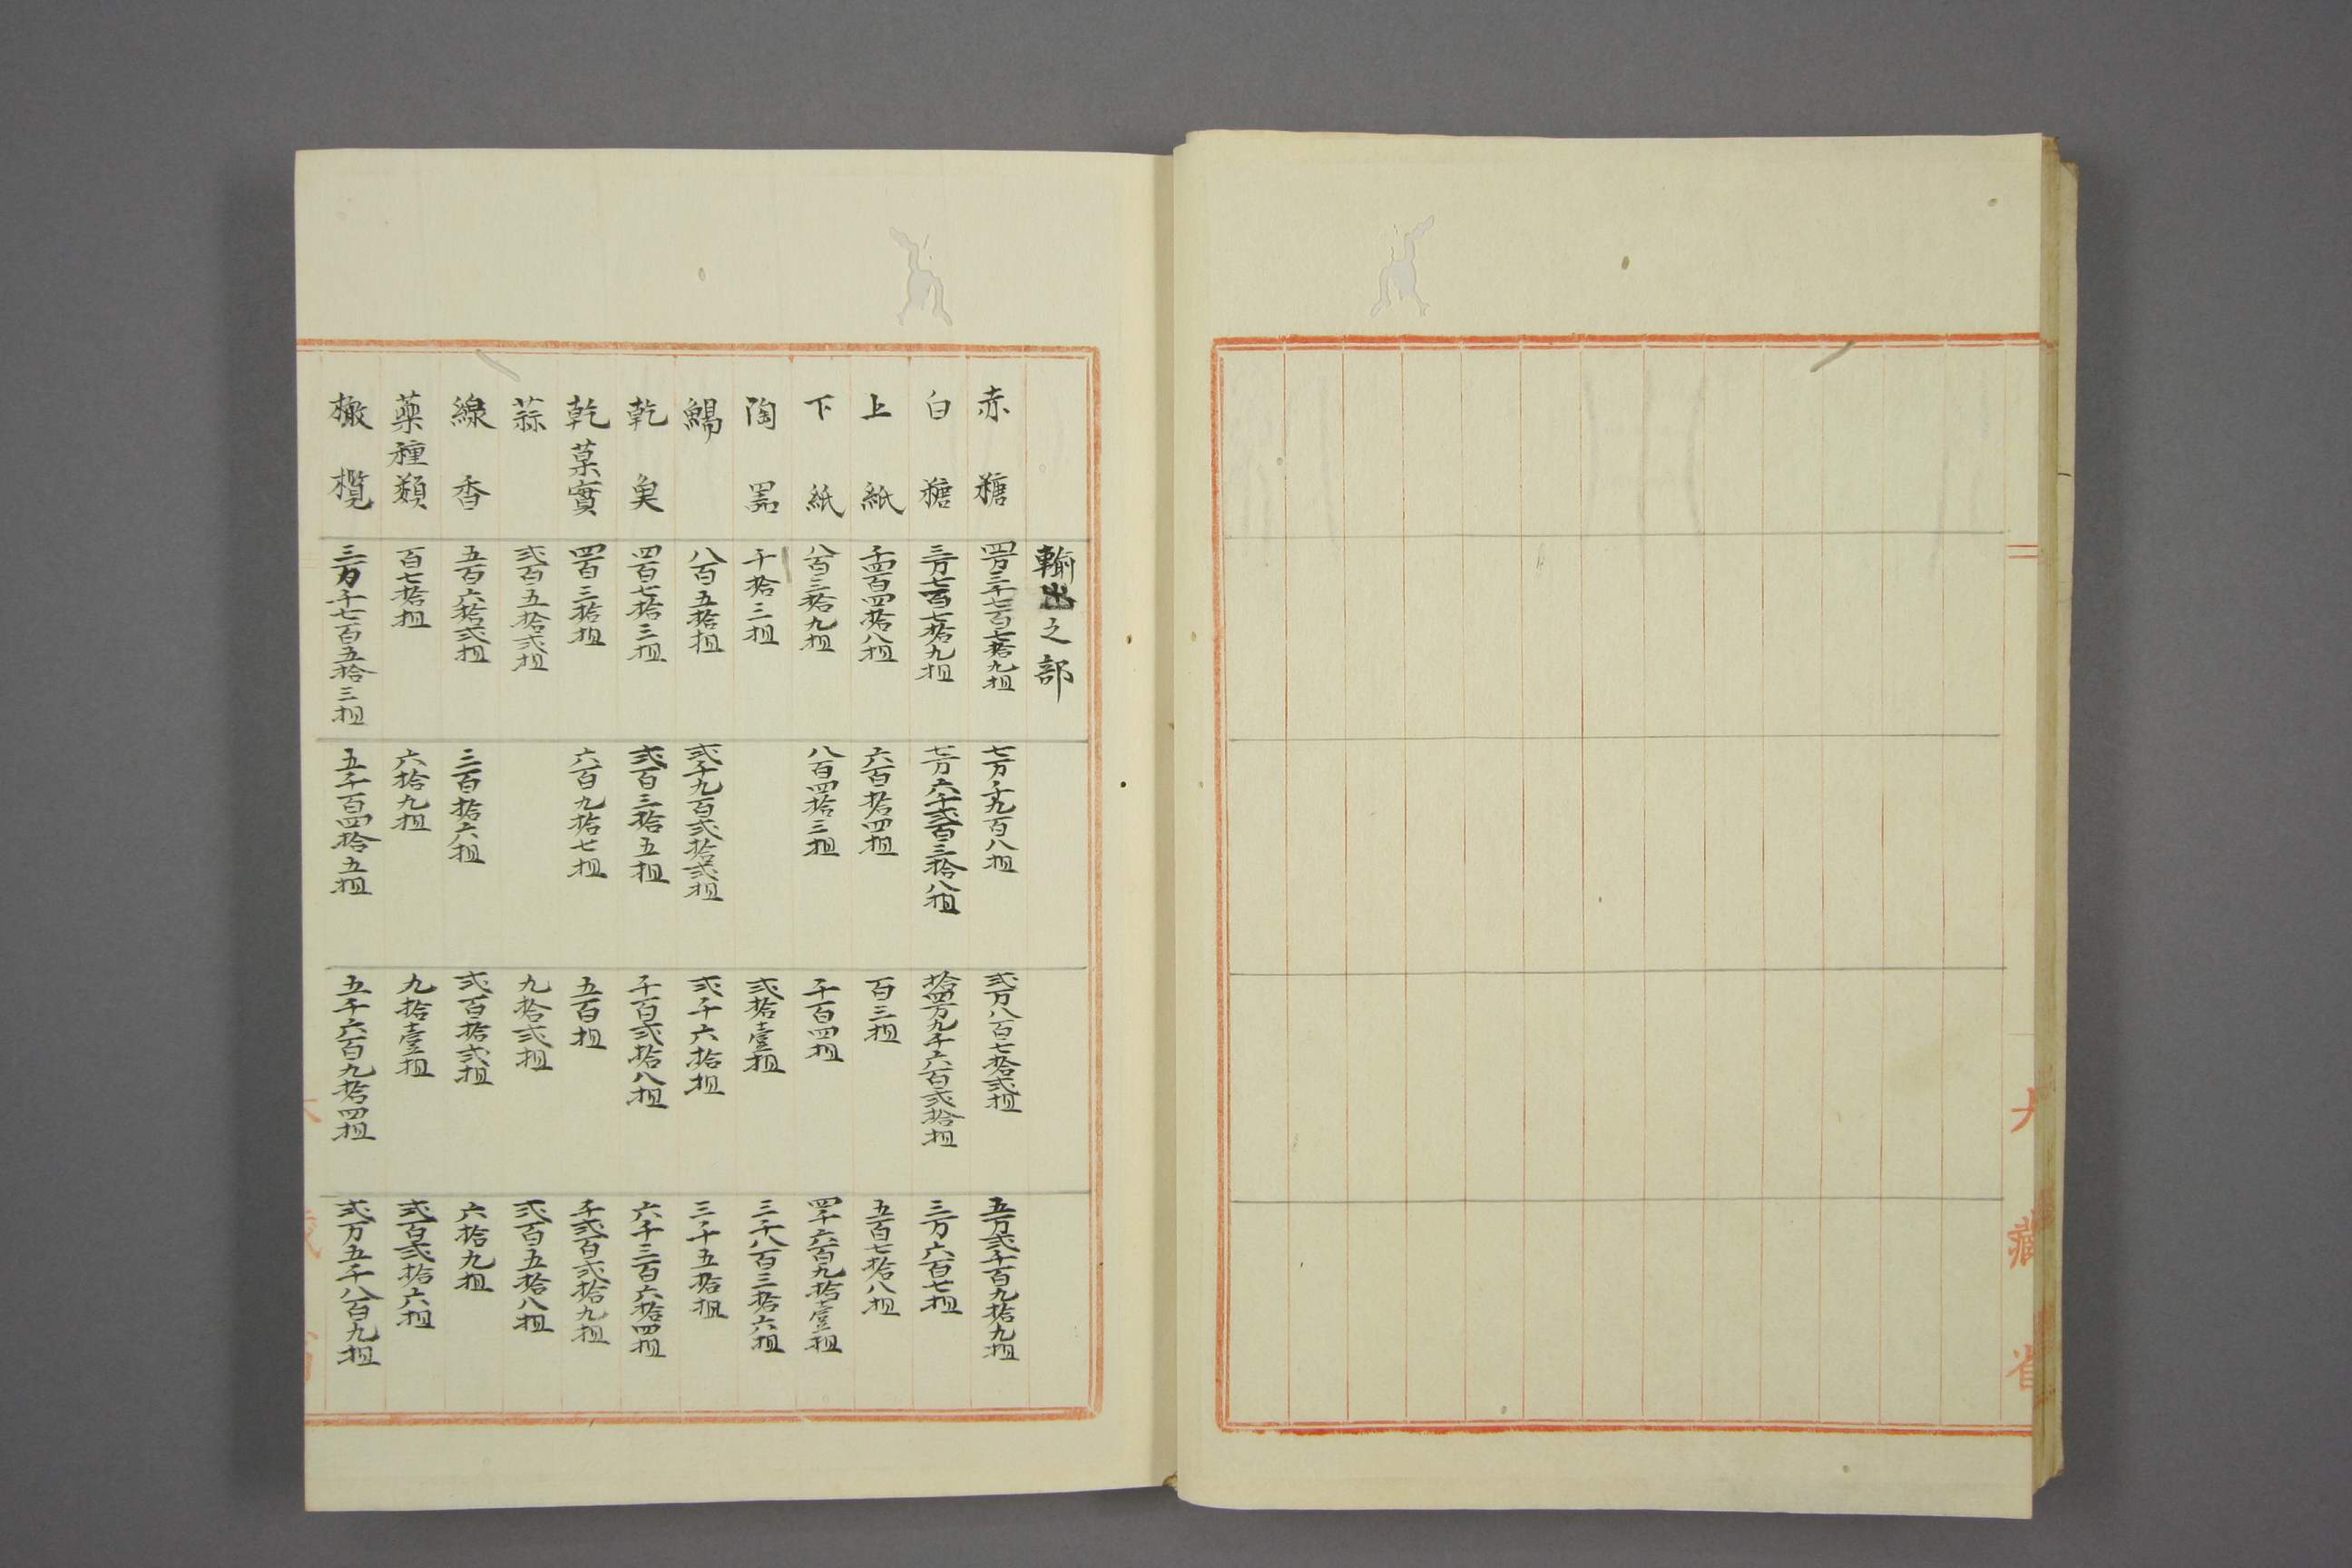 大藏省
輸出之部
赤糖 四万三千七百七拾九担 七万千九百八担 弐万八百七拾弐担 五万弐千百九拾九担
白糖 三万七百七拾九担 七万六千弐百三拾八担 拾四万九千六百弐拾担 三万六百七担
上紙 千四百四拾八担 六百拾四担 百三担 五百七拾八担
下紙 八百三拾九担 八百四拾三担 千百四担 四千六百九拾壹担
陶器 千拾三担 弐拾壹担 三千八百三拾六担
鯣 八百五拾担 弐千九百弐拾弐担 弐千六拾担 三千五拾担
乾魚 四百七拾三担 弐百三拾五担 千百弐拾八担 六千三百六拾四担
乾菓實 四百三拾担 六百九拾七担 五百担 千弐百弐拾九担
蒜 弐百五拾弐担 九拾弐担 弐百五拾八担
線香 五百六拾弐担 三百拾六担 弐百拾弐担 六拾九担
薬種類 百七拾担 六拾九担 九拾壹担 弐百弐拾六担
橄欖 三万千七百五拾三担 五千百四拾五担 五千六百九拾四担 弐万五千八百九担